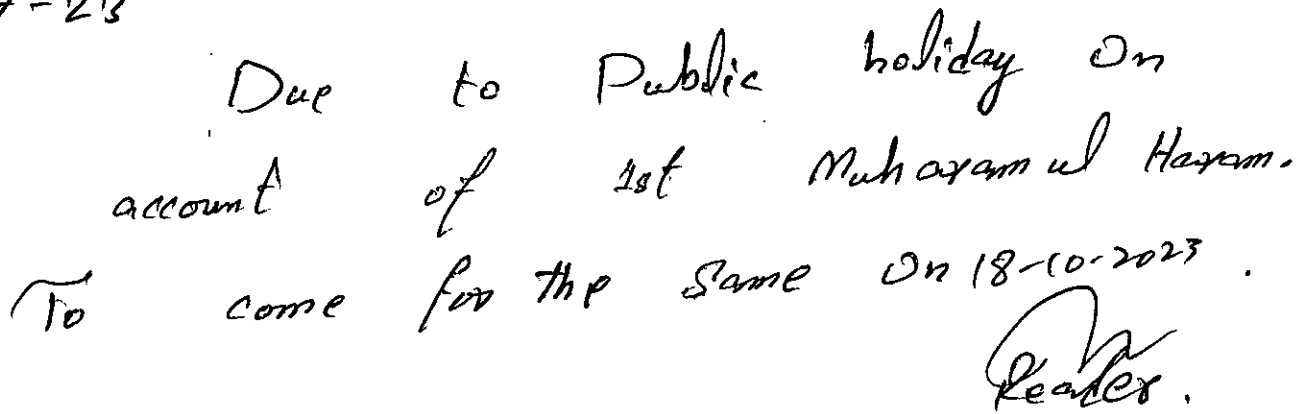 -23
Due to Public holiday On
account of 1st Muharam ul Haram.
To come for the same On 18-10-2023.
Reader.